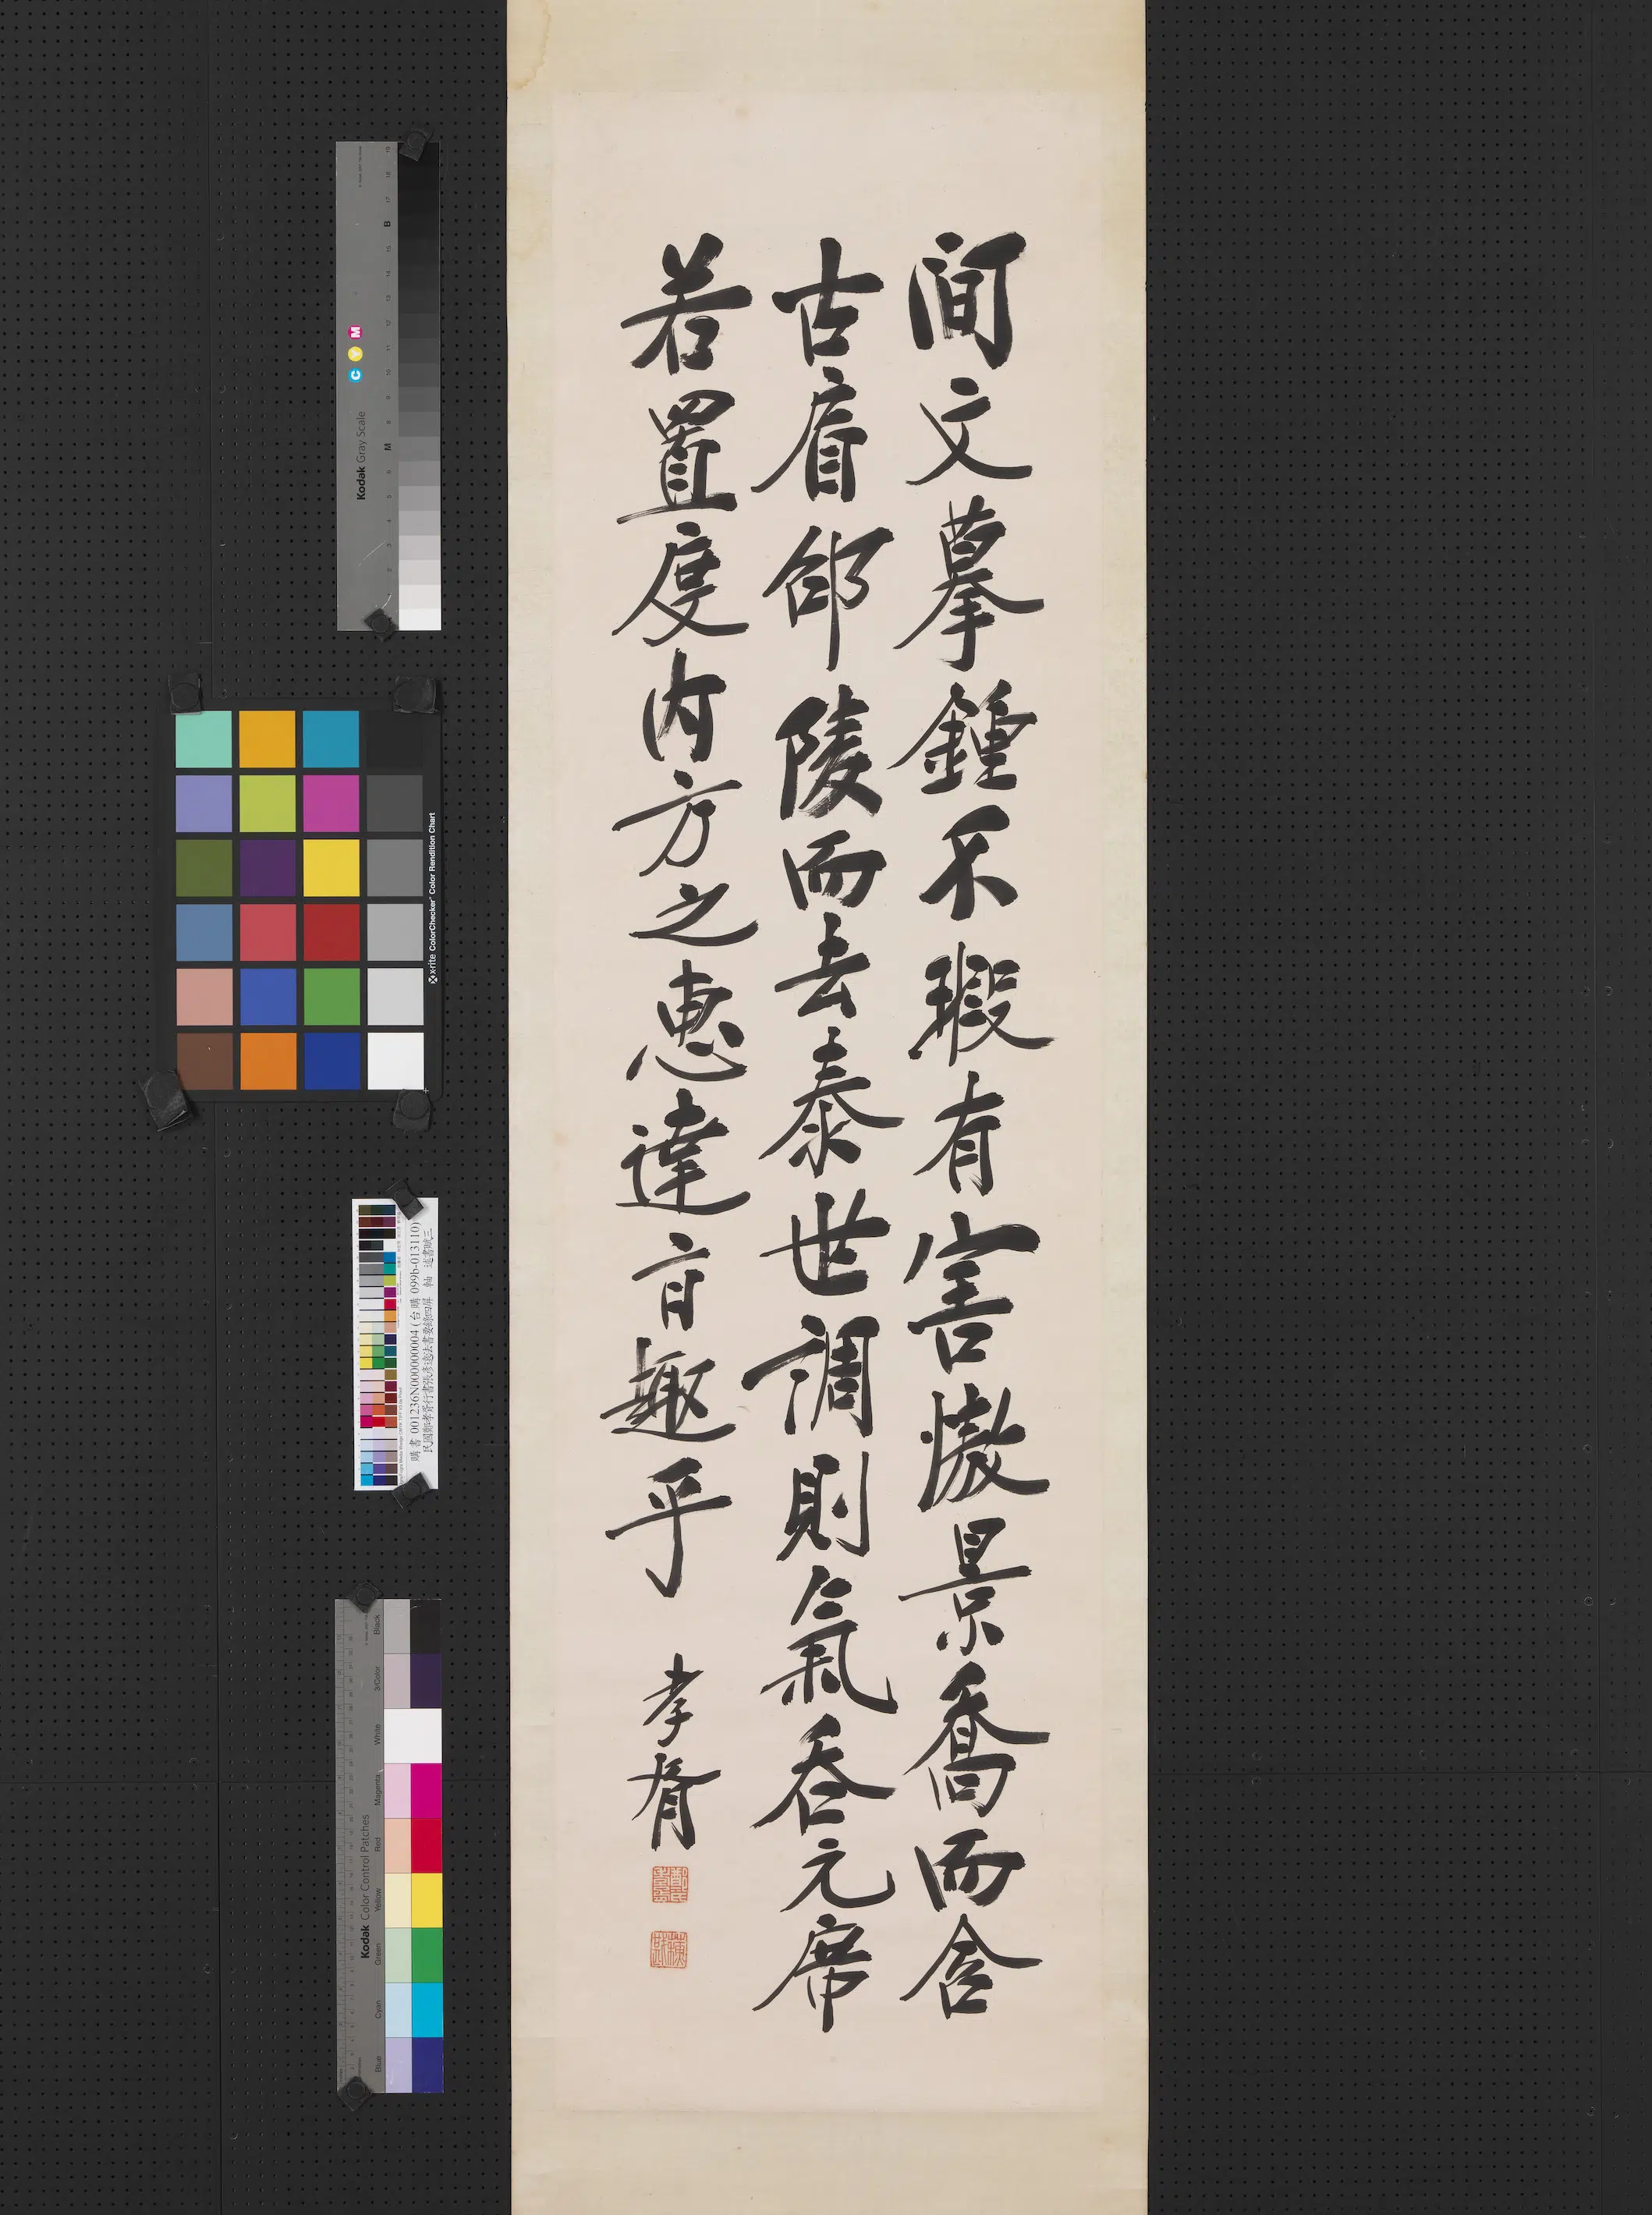 間文摹鍾不瑕有害憿景喬而含
古眉邰陵而去泰世調則氣吞元席
若置度内方之惠達趣乎
孝胥
蘇戡
Kodak Gray Scale
C Y M
B
M
x-rite ColorChecker Color Rendition Chart
購書 001236N000000004 (台購 099b-013110)
民國鄭孝胥行書張彥遠法書要錄四屏 軸 述書賦三
Kodak Color Control Patches
Blue
Cyan
Green
Yellow
Red
Magenta
White
3/Color
Black